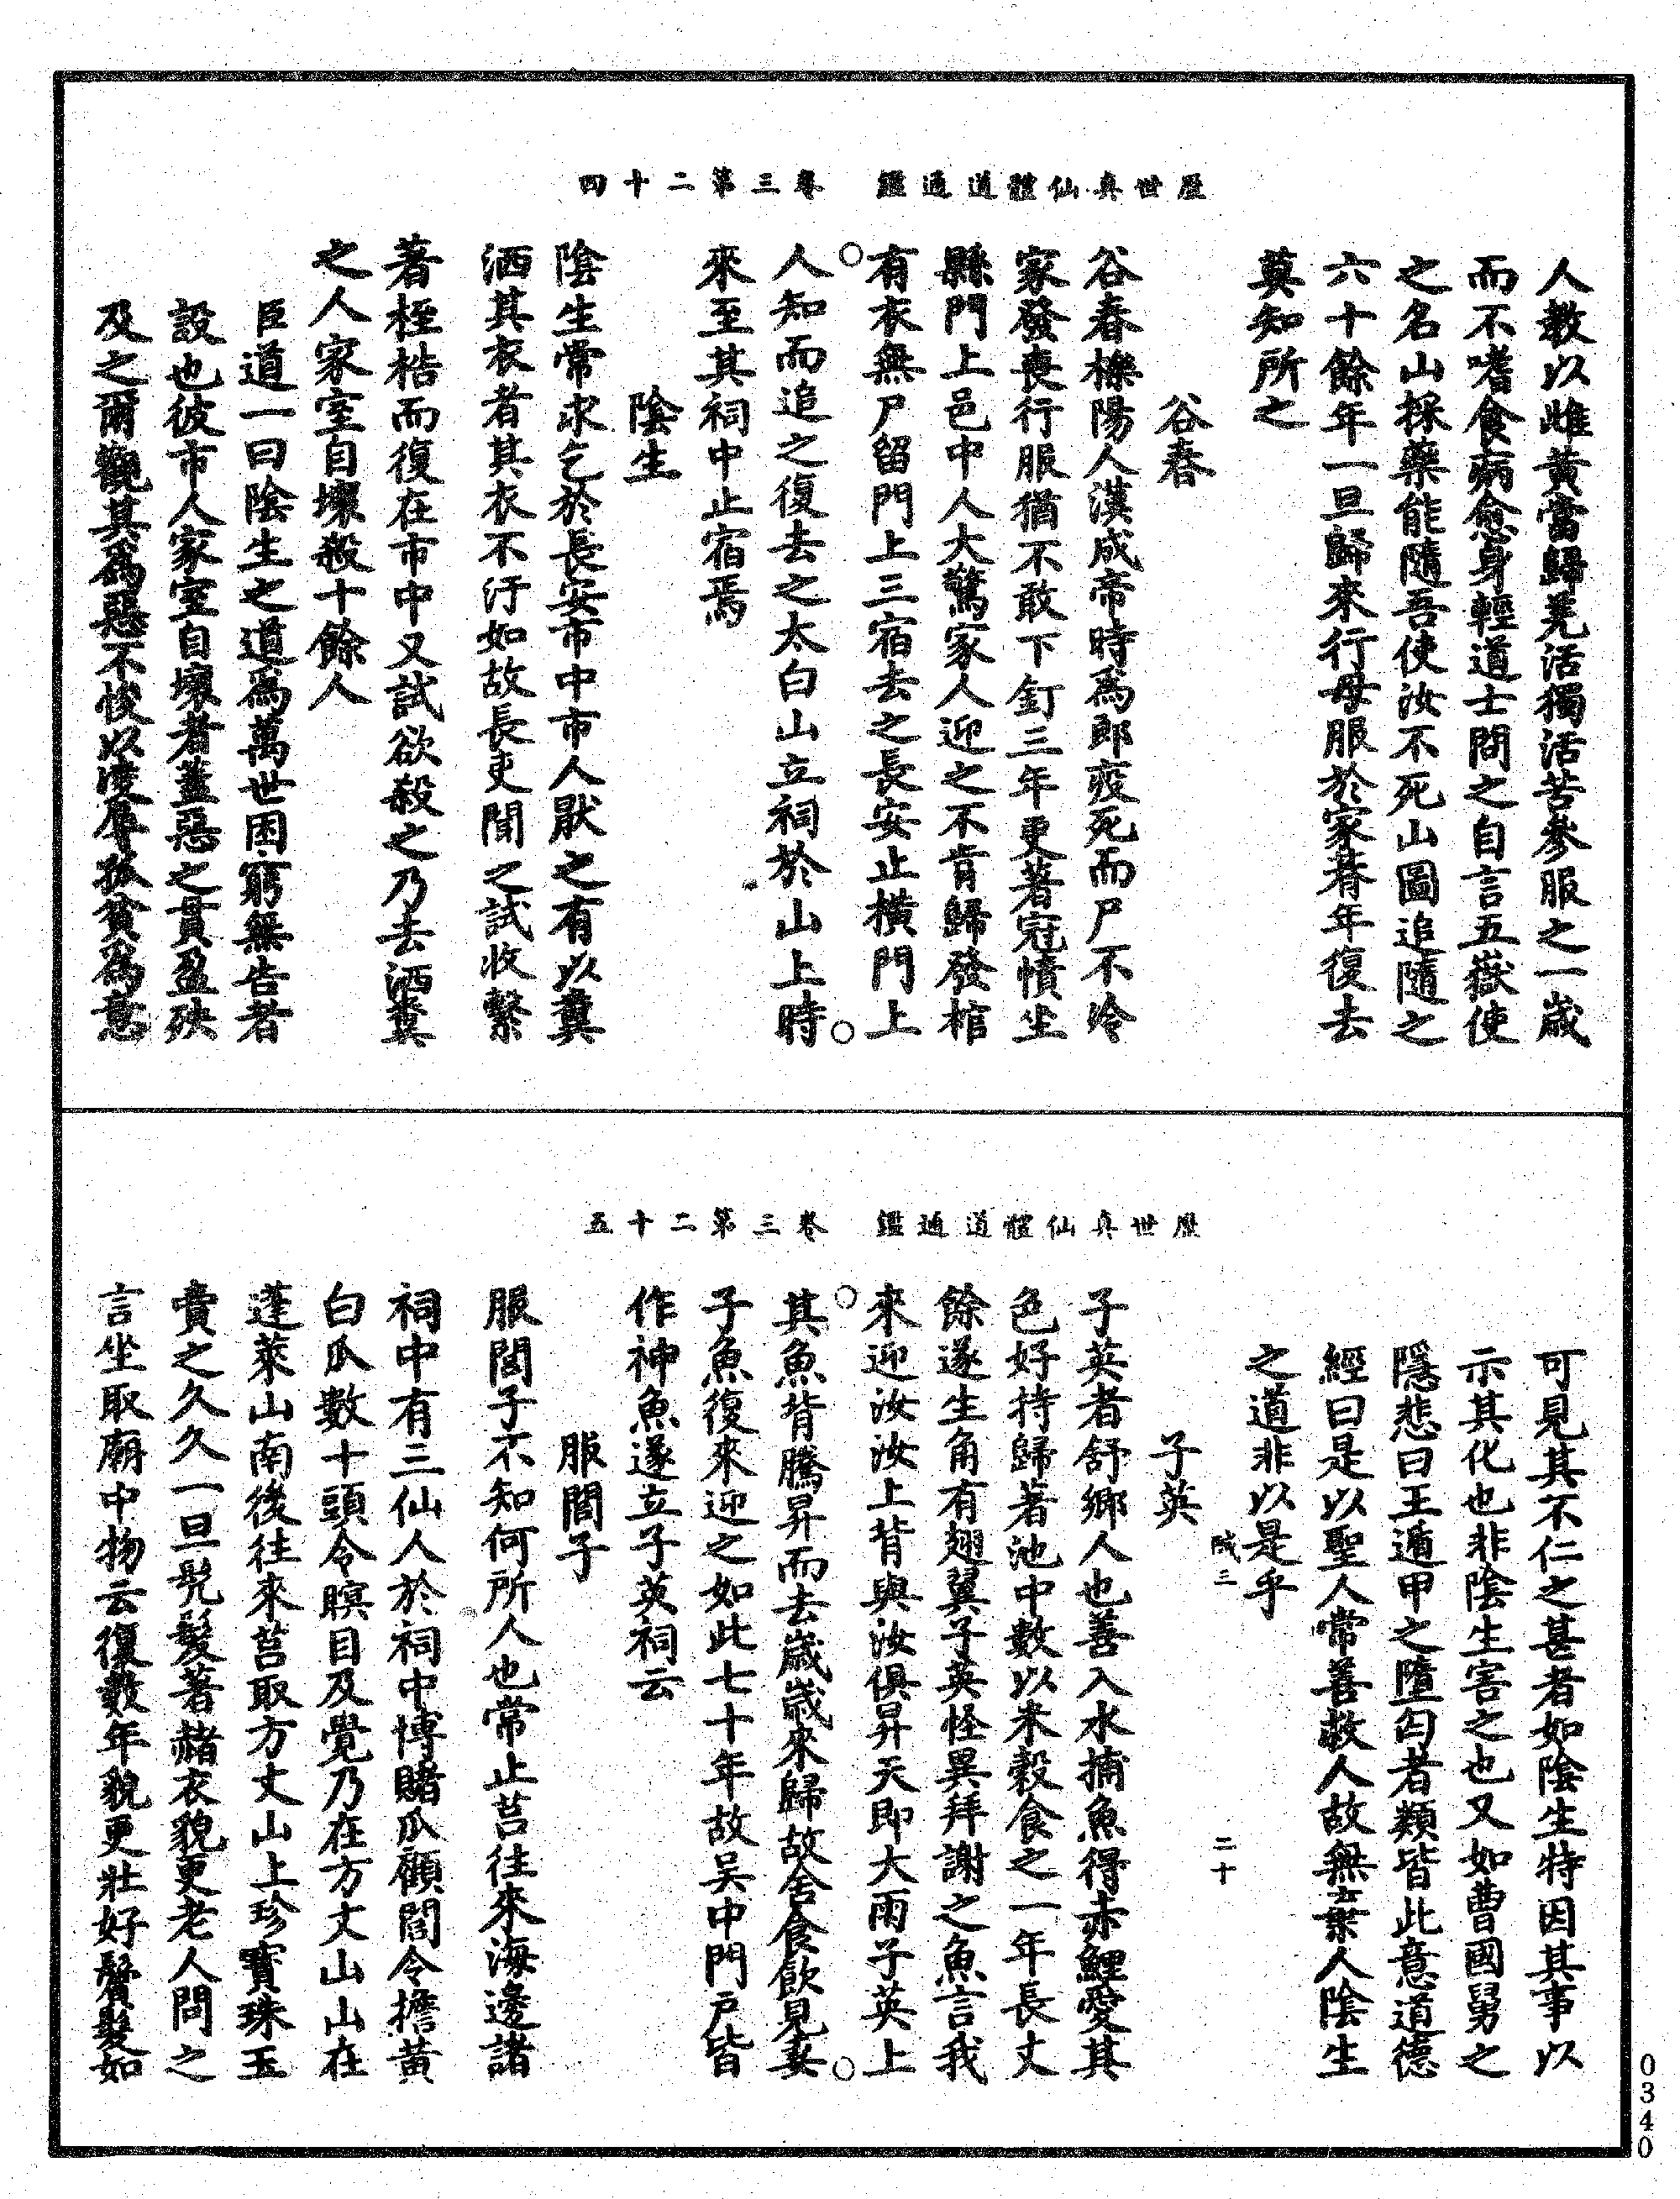 歷世真仙體道通鑑 卷三第二十四
人教以雌黃當歸羌活獨活苦參服之一歲
而不嗜食病愈身輕道士問之自言五嶽使
之名山採藥能隨吾使汝不死山圖追隨之
六十餘年一旦歸來行母服於家朞年復去
莫知所之
谷春
谷春櫟陽人漢成帝時為郎疫死而尸不冷
家發喪行服猶不敢下釘三年更著冠幘坐
縣門上邑中人大驚家人迎之不肯歸發棺
有衣無尸留門上三宿去之長安止橫門上
人知而追之復去之太白山立祠於山上時
來至其祠中止宿焉
陰生
陰生常求乞於長安市中市人厭之有以糞
洒其衣者其衣不汙如故長吏聞之試收繫
著桎梏而復在市中又試欲殺之乃去洒糞
之人家室自壞殺十餘人
臣道一曰陰生之道為萬世困窮無告者
設也彼市人家室自壞者蓋惡之貫盈殃
及之爾觀其為惡不悛以凌辱孤貧為意
歷世真仙體道通鑑 卷三第二十五
可見其不仁之甚者如陰生特因其事以
示其化也非陰生害之也又如曹國舅之
隱悲曰王遁甲之墮匄者類皆此意道德
經曰是以聖人常善救人故無棄人陰生
之道非以是乎
鹹三 二十
子英
子英者舒鄉人也善入水捕魚得赤鯉愛其
色好持歸著池中數以米穀食之一年長丈
餘遂生角有翅翼子英怪異拜謝之魚言我
來迎汝汝上背與汝俱昇天即大雨子英上
其魚背騰昇而去歲歲來歸故舍食飲見妻
子魚復來迎之如此七十年故吳中門戶皆
作神魚遂立子英祠云
服閭子
服閭子不知何所人也常止莒往來海邊諸
祠中有三仙人於祠中博賭瓜顧閭令擔黃
白瓜數十頭令瞑目及覺乃在方丈山山在
蓬萊山南後往來莒取方丈山上珍寶珠玉
賣之久久一旦髡髮著赭衣貌更老人問之
言坐取廟中物云復數年貌更壯好鬢髮如
0340